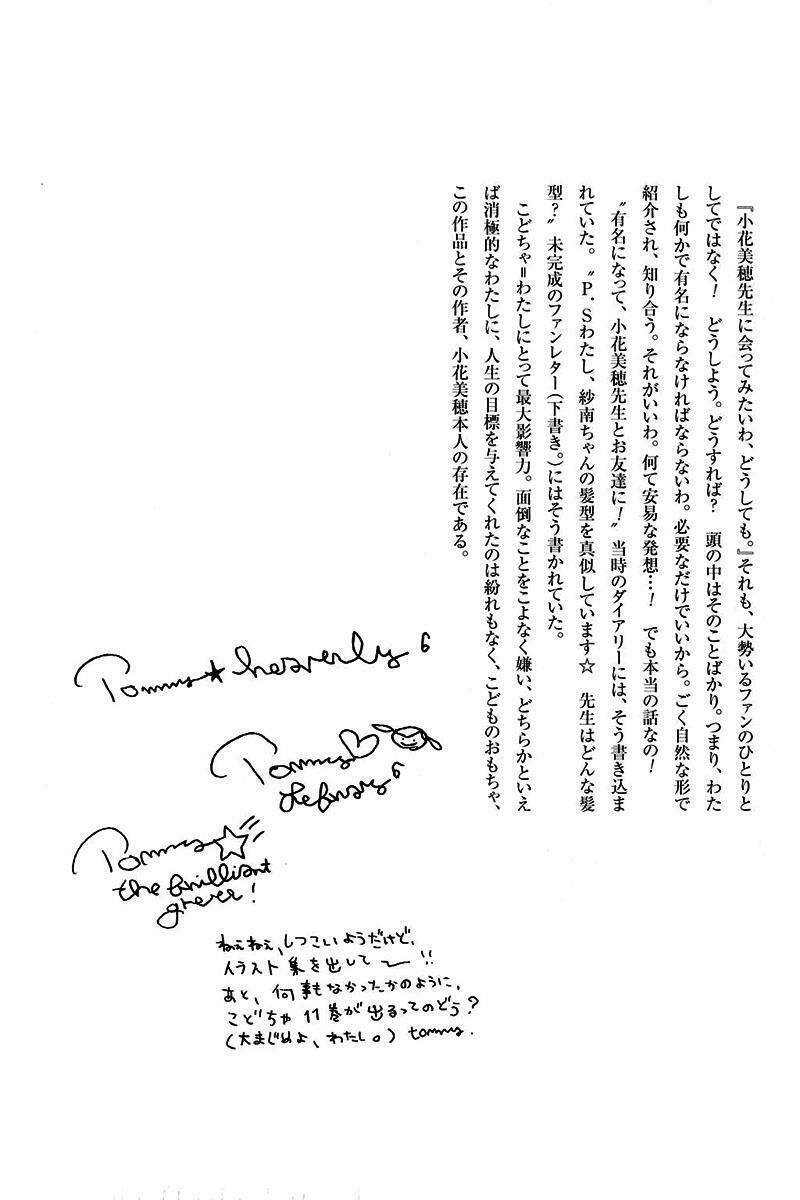 『小花美穂先生に会ってみたいわ、どうしても。』それも、大勢いるファンのひとりと
してではなく！　どうしよう。どうすれば？　頭の中はそのことばかり。つまり、わた
しも何かで有名にならなければならないわ。必要なだけでいいから。ごく自然な形で
紹介され、知り合う。それがいいわ。何て安易な発想…！　でも本当の話なの！
〝有名になって、小花美穂先生とお友達に！〟当時のダイアリーには、そう書き込ま
れていた。〝P.Sわたし、紗南ちゃんの髪型を真似しています☆　先生はどんな髪
型？〟未完成のファンレター（下書き。）にはそう書かれていた。
こどちゃ＝わたしにとって最大影響力。面倒なことをこよなく嫌い、どちらかといえ
ば消極的なわたしに、人生の目標を与えてくれたのは紛れもなく、こどものおもちゃ、
この作品とその作者、小花美穂本人の存在である。
Tommy★heavenly6
Tommy♡
february6
Tommy☆
the brilliant
green!
ねぇねぇ、しつこいようだけど、
イラスト集を出して〜!!
あと、何事もなかったかのように、
こどちゃ11巻が出るってのどう？
（大まじめよ、わたし。）tommy.